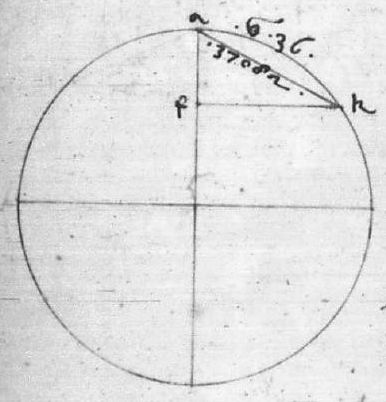 a
.6.36.
.37082.
f
h